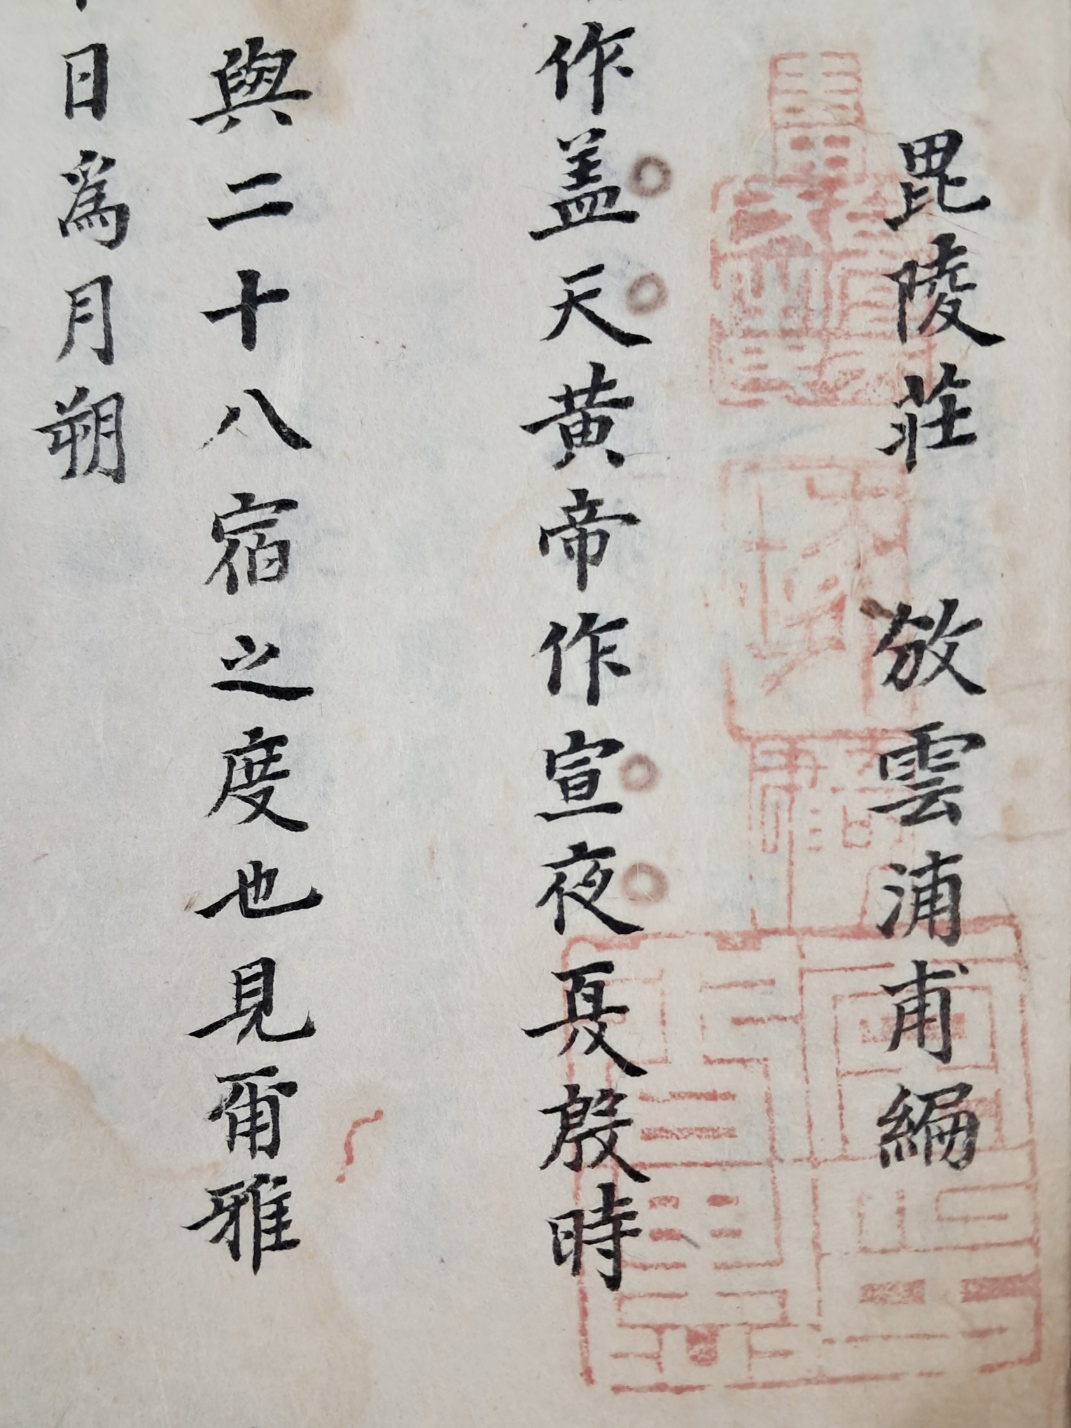 毘陵莊　敓雲浦甫編
作盖天黃帝作宣夜夏殷時
與二十八宿之度也見爾雅
日為月朔